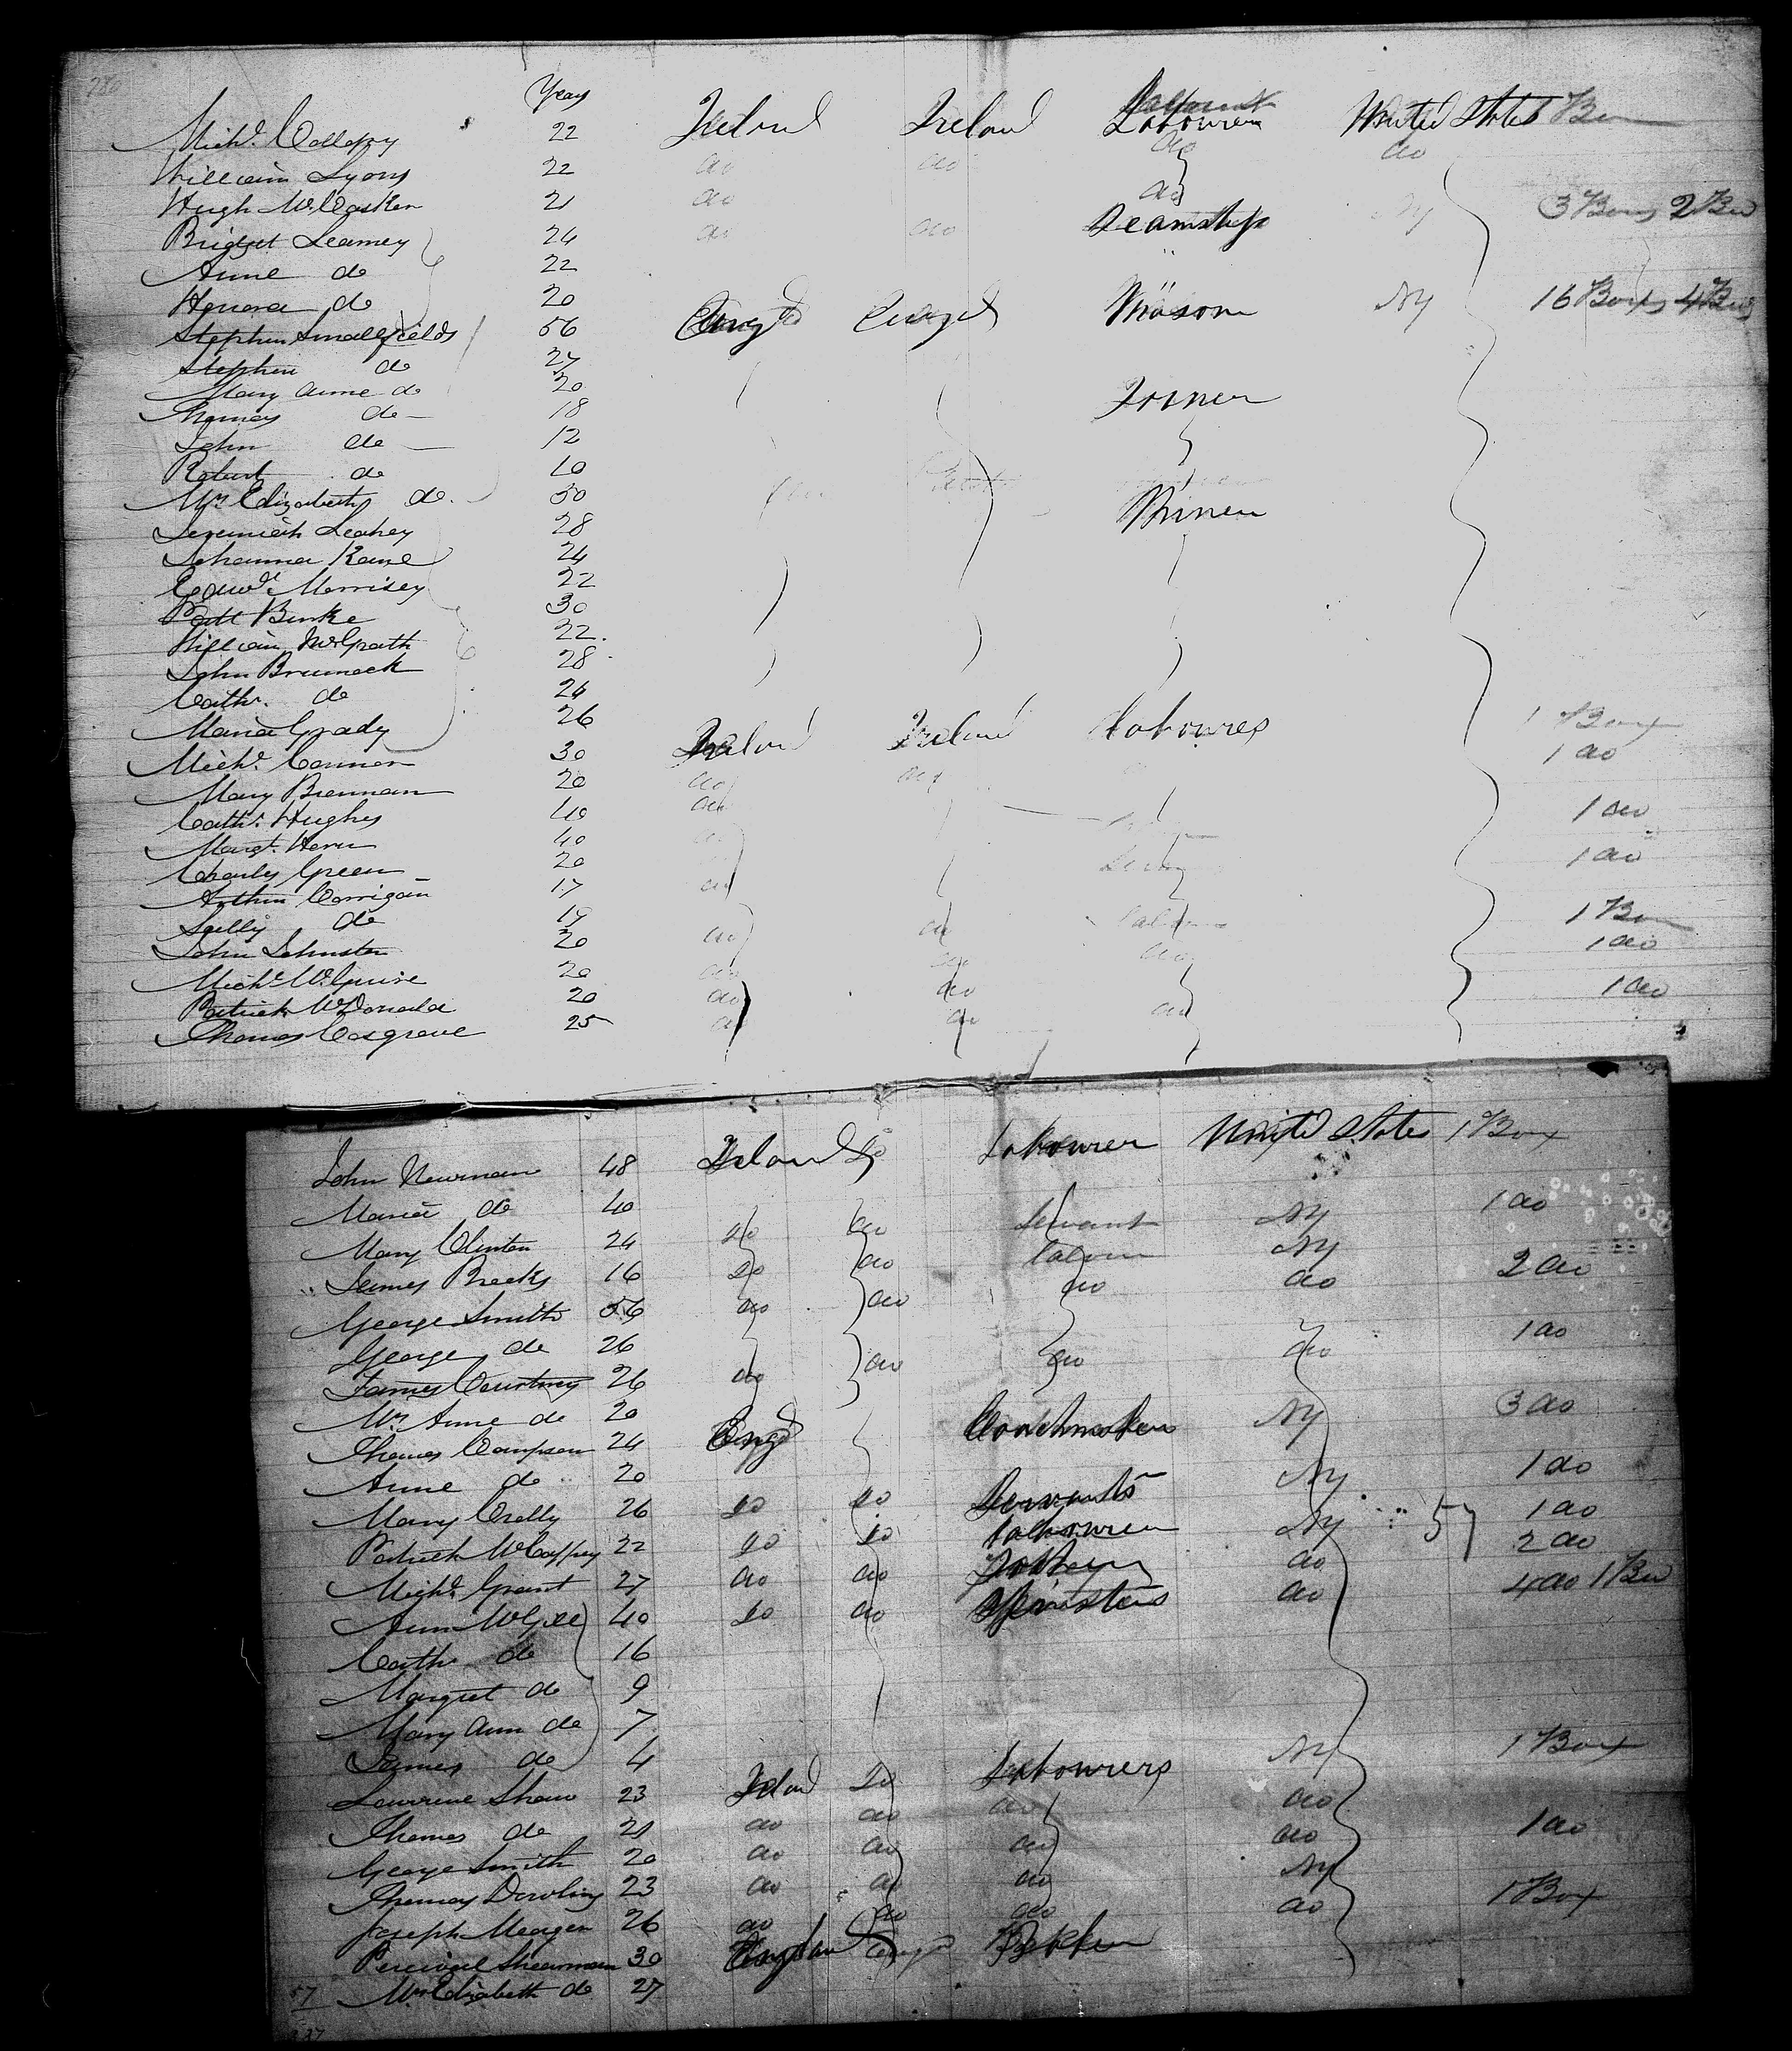 Years
Mich.l Collopy 22 Ireland Ireland Labourer United States Box
William Lyons 22 do do do do
Hugh McCosker 21 do do
Bridget Leamey 24 do do Seamstress NY 3 Boxes 2 Bed
Anne do 22
Honora do 20
Stephen Smallfields 56 Eng.d Eng.d Mason NY 16 Boxes 4 Beds
Stephen do 27
Mary Anne do 20 Joiner
Thomas do 18
John do 12
Robert do 10
Mrs Elizabeth do 50 Miner
Jeremiah Leahey 28
Johanna Kane 24
Edwd. Morrisey 22
Patt Burke 30
William McGrath 22
John Brumock 28
Cathr. do 24
Maria Grady 26 Ireland Ireland Laboures 1 Box
Michl. Connor 30 do do 1 do
Mary Brennan 20 do
Cathr. Hughes 40 1 do
Margt. Hern 40
Charles Green 20 do 1 do
Arthur Corrigan 17
Sally do 19 do do 1 Box
John Johnston 20 do do do 1 do
Michl. McGuire 20 do do
Patrick McDonald 20 do do do 1 do
Thomas Cosgrove 25
John Newman 48 Ireland Do Labourer United States 1 Box
Maria do 40
Mary Clinton 24 Do do Servant NY 1 do
James Breeks 16 Do do Labour NY
George Smith 56 do do do do 2 do
George do 26
James Courtney 26 do do do do 1 do
Mrs Anne do 20
Thomas Compson 24 Eng.d Coachmaker NY 3 do
Anne do 20
Mary Crelly 26 Do Do Servants NY 1 do
Patrick McCaffrey 22 Do Do Labourer NY 57 1 do
Michl. Grant 27 do do do 2 do
Ann McGill 40 Do do Spinsters do 4 do 1 Bed
Cathr do 16
Margret do 9
Mary Ann do 7
James do 4
Lawrence Shaw 23 Ireland Do Labourers NY 1 Box
Thomas do 21 do do do do
George Smith 20 do do do do 1 do
Thomas Dowling 23 do do do NY
Joseph Meager 26 do do do do 1 Box
Percival Shearman 30 England Eng.d
57 Mrs Elizabeth do 27